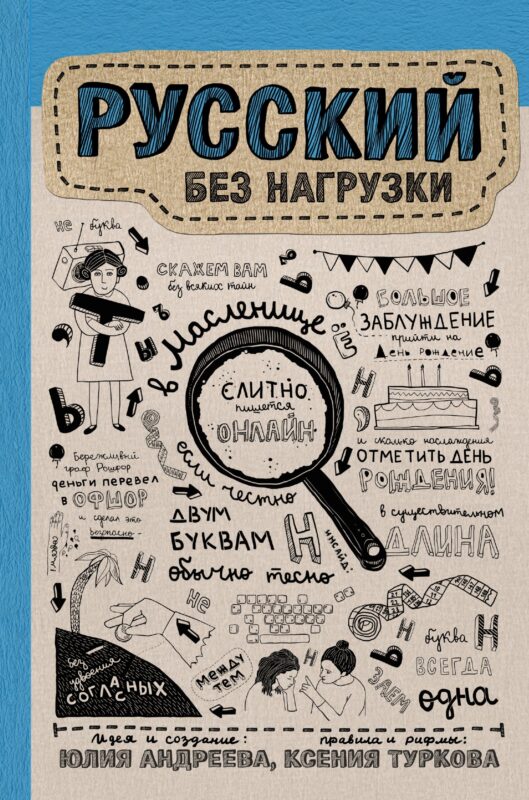 РУССКИЙ
БЕЗ НАГРУЗКИ
не буква
Т
СКАЖЕМ ВАМ
без всяких тайн
СЛИТНО
пишется
ОНЛАЙН
БОЛЬШОЕ
ЗАБЛУЖДЕНИЕ
прийти на
День рождение
и сколько наслаждения
ОТМЕТИТЬ ДЕНЬ
РОЖДЕНИЯ!
Бережливый
граф Рошфор
деньги перевел
в ОФШОР
и сделал это
безопасно
в Масленице
если честно
ДВУМ
БУКВАМ Н
обычно тесно
инсайд:
в существительном
ДЛИНА
буква Н
ВСЕГДА
одна
не
без удвоения
СОГЛАСНЫХ
МЕЖДУ
ТЕМ
ЗАЕМ
Идея и создание: правила и рифмы:
ЮЛИЯ АНДРЕЕВА, КСЕНИЯ ТУРКОВА